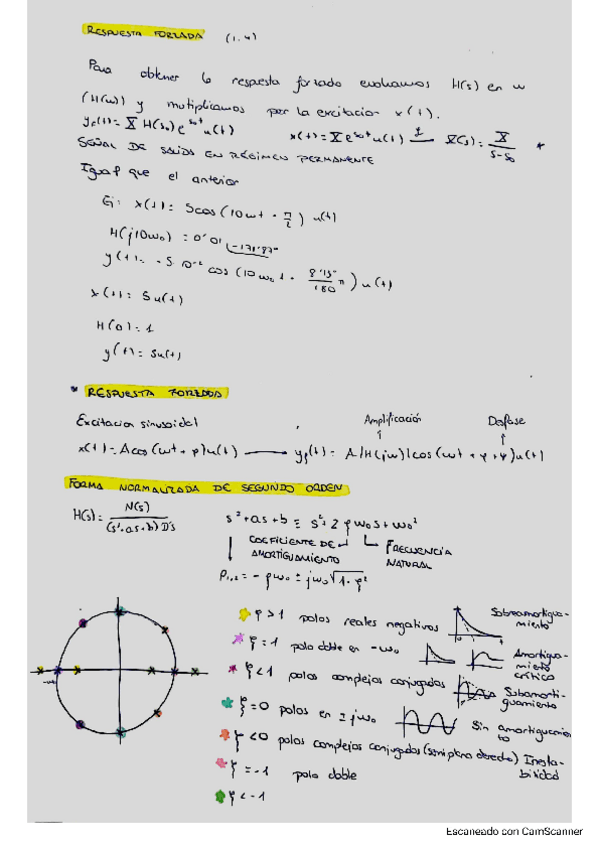 RESPUESTA FORZADA (1.4)
Para obtener la respuesta forzada evaluamos H(s) en w
(H(w)) y multiplicamos por la excitacion x(t).
yf(t)= X H(s₀) e^s₀t u(t) x(t)= X e^s₀t u(t) X(s)= X/(s-s₀) *
SEÑAL DE SALIDA EN RÉGIMEN PERMANENTE
Igual que el anterior
Ej: x(t)= 5cos(10wt - π/2) u(t)
H(j10w₀) = 0'01 -171'87°
y(t)= -5·10⁻² cos(10w₀t - 8'13°/180 π) u(t)
x(t)= 5u(t)
H(0)=1
y(t)= 5u(t)
* RESPUESTA FORZADA
Excitacion sinusoidal Amplificación Desfase
x(t)= Acos(wt + φ)u(t) → yf(t)= A|H(jw)|cos(wt + φ + ψ)u(t)
FORMA NORMALIZADA DE SEGUNDO ORDEN
H(s)= N(s)/(s²+as+b)D's s²+as+b ≡ s²+2ρw₀s+w₀²
COEFICIENTE DE AMORTIGUAMIENTO FRECUENCIA NATURAL
P₁,₂ = -ρw₀ ± jw₀√1-ρ²
ρ>1 polos reales negativos Sobreamortiguamiento
ρ=1 polo doble en -w₀ Amortiguamiento crítico
-w₀
ρ<1 polos complejos conjugados Subamortiguamiento
ρ=0 polos en ±jw₀ Sin amortiguamiento
ρ<0 polos complejos conjugados (semiplano derecho) Inestabilidad
ρ=-1 polo doble
ρ<-1
Escaneado con CamScanner